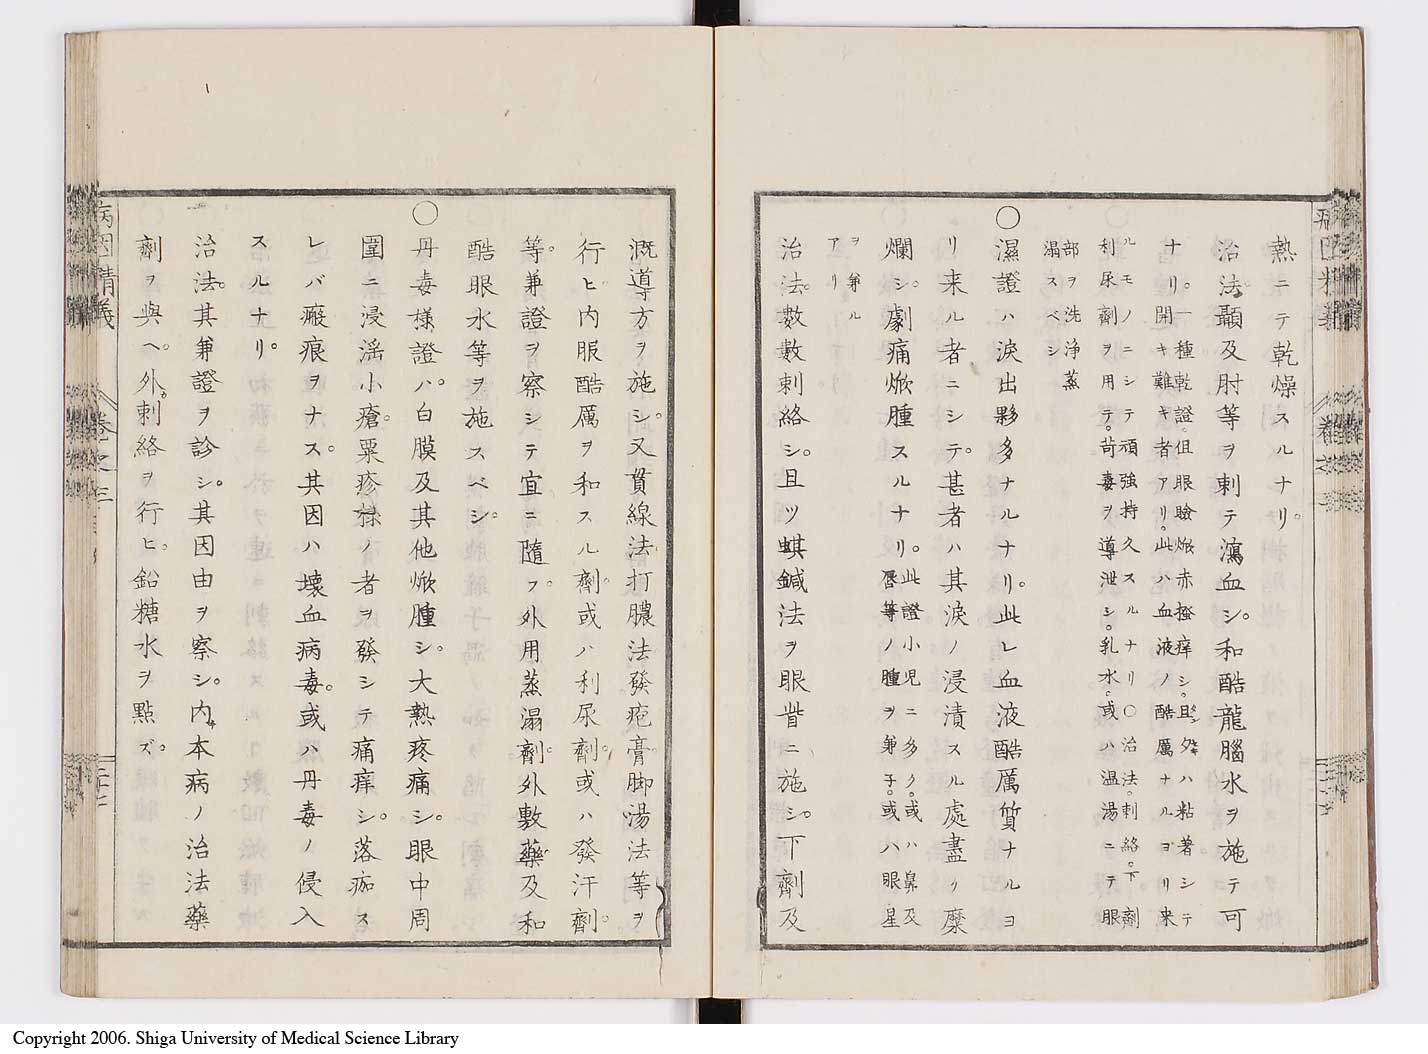 熱ニテ乾燥スルナリ。
治法。顳及肘等ヲ刺テ瀉血シ。和酷龍腦水ヲ施テ可
ナリ。一種乾證。但眼瞼焮赤掻痒シ。且ツ夕ハ粘著シテ
開キ難キ者アリ。此ハ血液ノ酷厲ナルヨリ来
ルモノニシテ頑強持久スルナリ〇治法。刺絡。下劑
利尿劑ヲ用テ。苛毒ヲ導泄シ。乳水。或ハ温湯ニテ眼
部ヲ洗浄蒸
溻スベシ
〇濕證ハ淚出夥多ナルナリ。此レ血液酷厲質ナルヨ
リ来ル者ニシテ。甚者ハ其淚ノ浸漬スル處盡ク糜
爛シ。劇痛焮腫スルナリ。此證小児ニ多ク。或ハ鼻及
唇等ノ腫ヲ兼子。或ハ眼星
ヲ兼ル
アリ
治法。數數刺絡シ。且ツ蜞鍼法ヲ眼眥ニ施シ。下劑及
溉導方ヲ施シ。又貫線法打膿法發疱膏。脚湯法等ヲ
行ヒ。内服酷厲ヲ和スル劑。或ハ利尿劑。或ハ發汗劑。
等。兼證ヲ察シテ宜ニ隨フ。外用蒸溻劑。外敷藥及和
酷眼水等ヲ施スベシ。
〇丹毒様證ハ。白膜及其他焮腫シ。大熱疼痛シ。眼中周
圍ニ浸淫小瘡。粟疹様ノ者ヲ發シテ痛痒シ。落痂ス
レバ瘢痕ヲナス。其因ハ壊血病毒。或ハ丹毒ノ侵入
スルナリ。
治法。其兼證ヲ診シ。其因由ヲ察シ。内ハ本病ノ治法藥
劑ヲ與ヘ。外。刺絡ヲ行ヒ。鉛糖水ヲ點ズ。
病因精義
巻之三
二十七
Copyright 2006. Shiga University of Medical Science Library